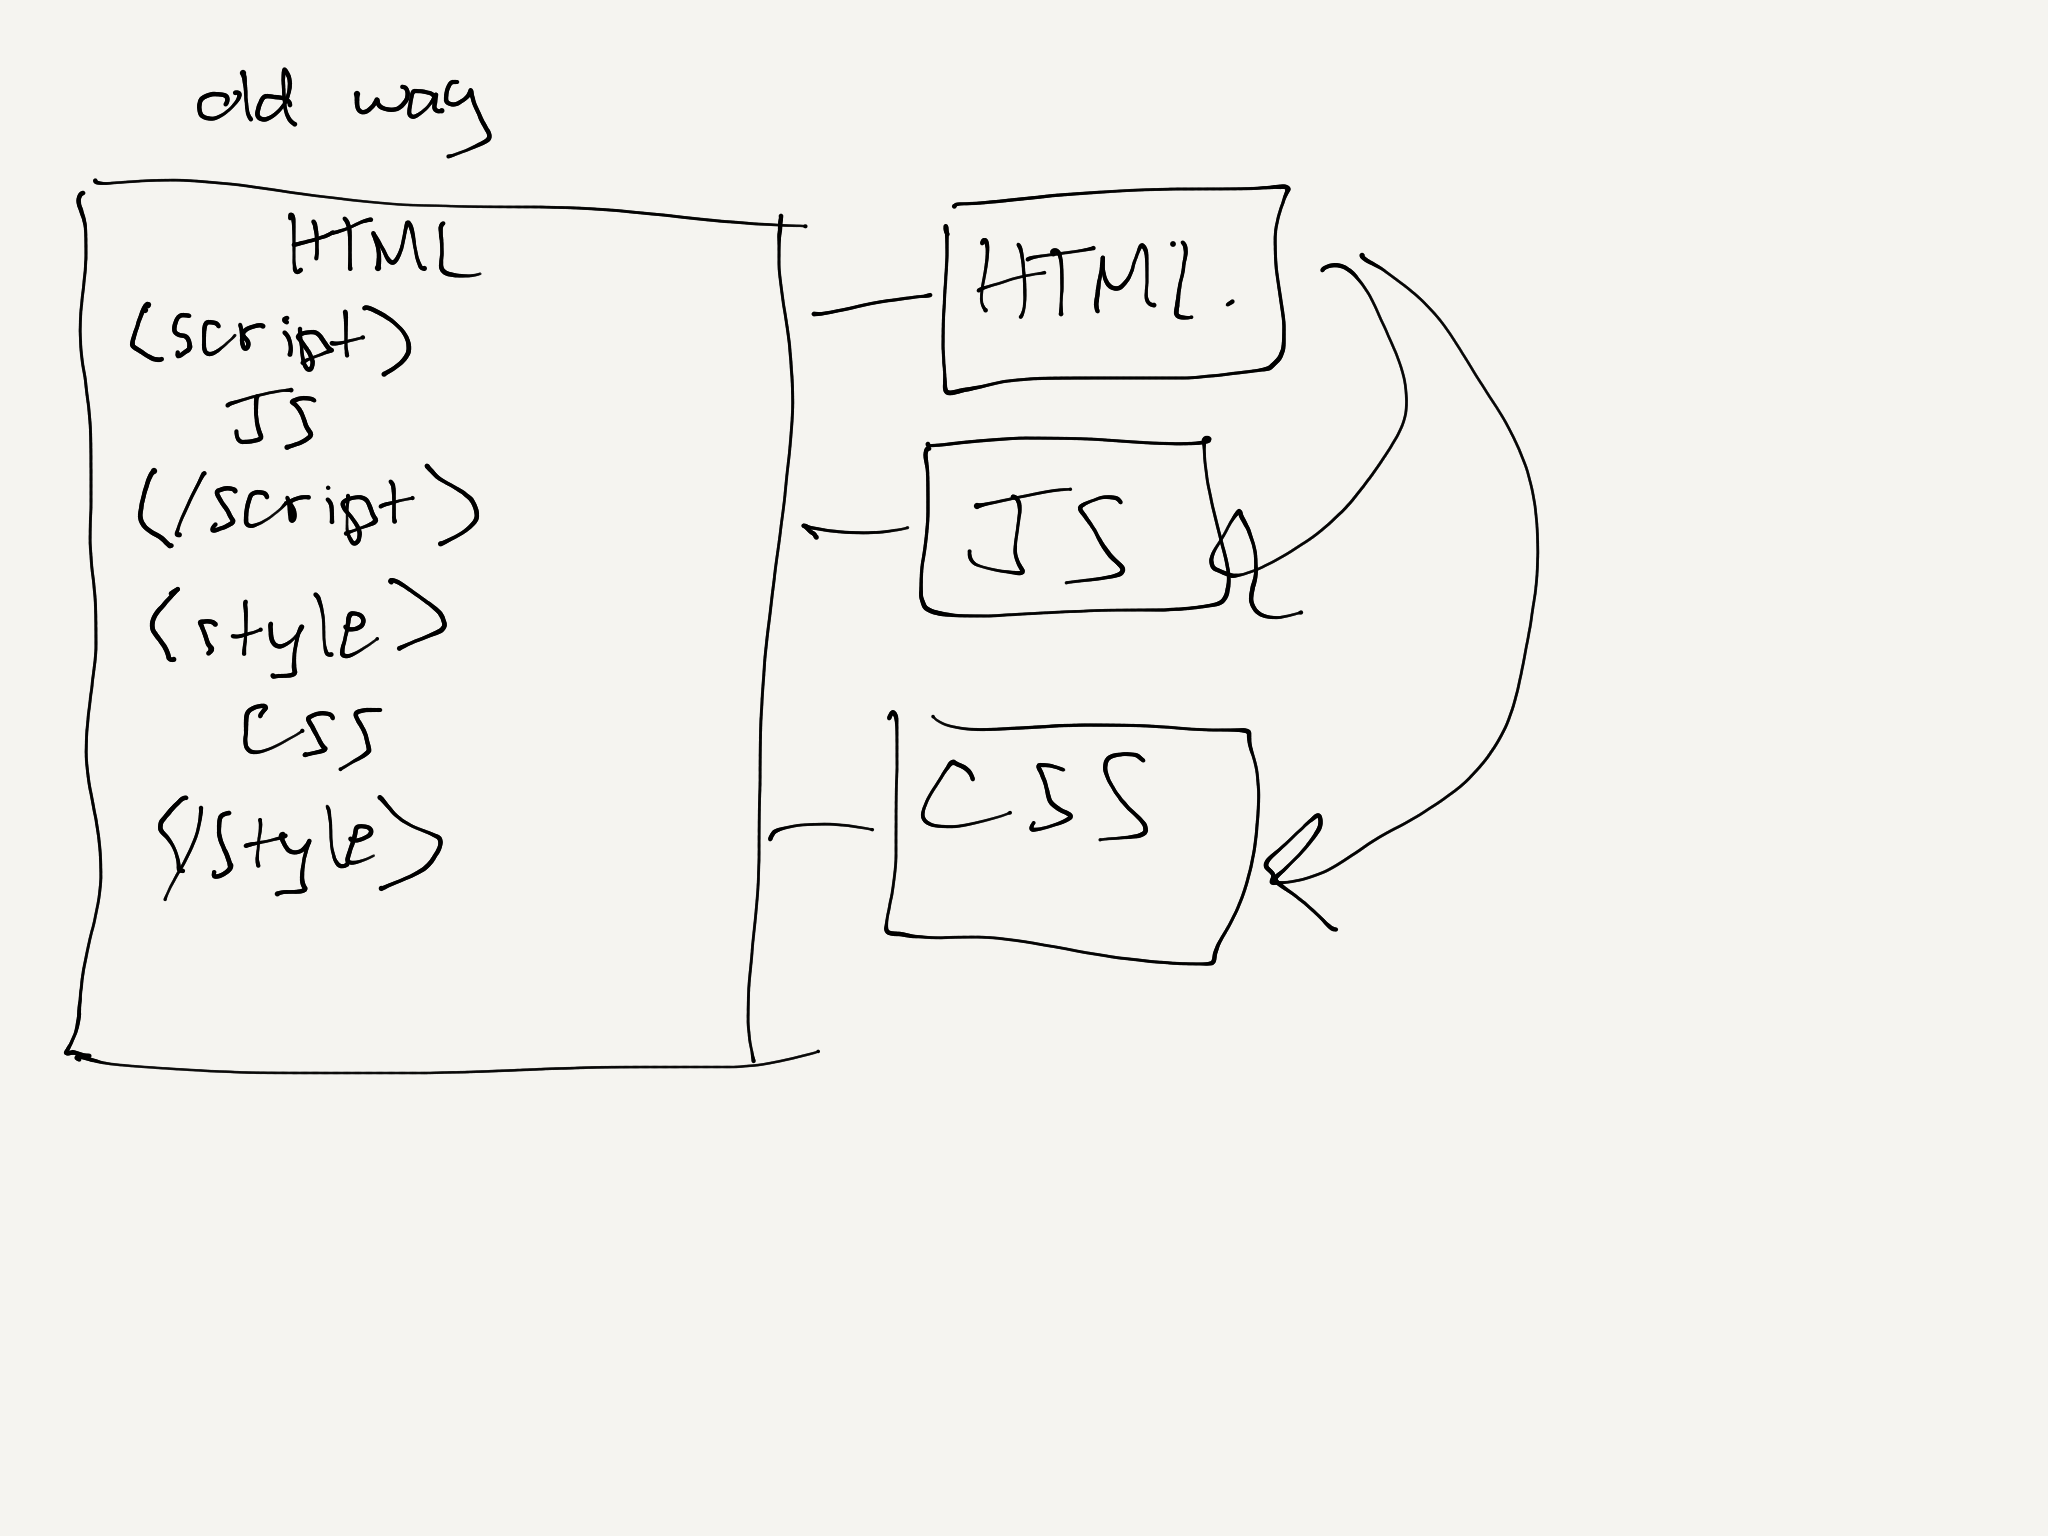 old way
HTML
<script>
JS
</script>
<style>
CSS
</style>
HTML.
JS
CSS